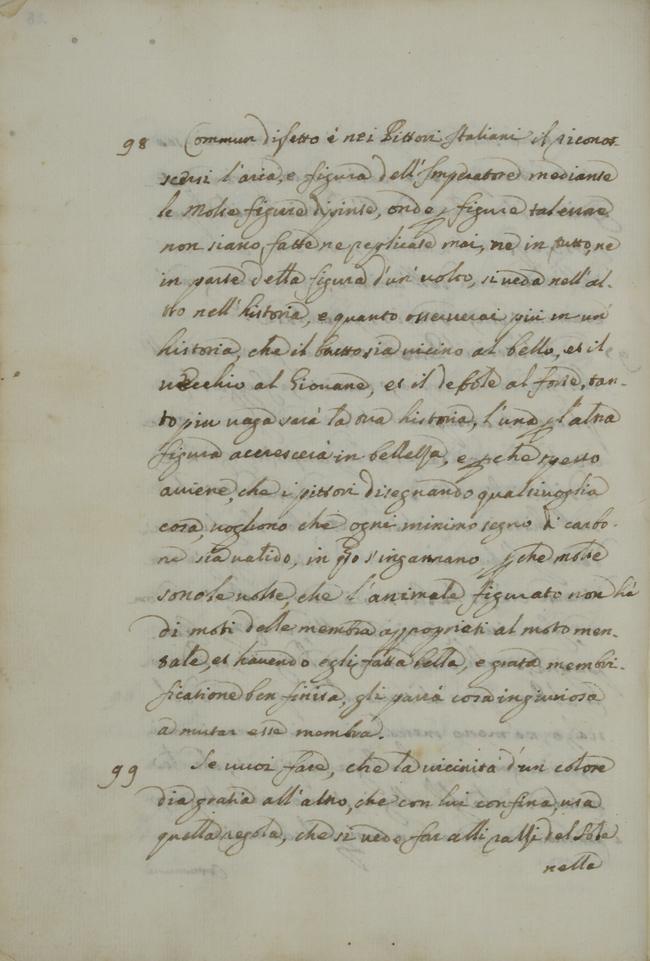 98 Commun difetto è nei Pittori Italiani il riconos-
scersi l'aria, e figura dell'Imperatore mediante
le molte figure dipinte, onde figure tal errore
non siano fatte ne replicate mai, ne in tutto, ne
in parte detta figura d'un volto, si veda nell'al-
tro nell'historia, e quanto osserverai più in un'
historia, che il brutto sia vicino al bello, et il
vecchio al Giovane, et il debole al forte, tan-
to piu vaga sarà la tua historia, l'una l'altra
figura accrescerà in bellezza, e pche spesso
aviene, che i pittori disegnando qualsivoglia
cosa, vogliono che ogni minimo segno di carbo-
ne sia valido, in qto s'ingannano, pche molte
sono le volte, che l'animale figurato non hà
di moti delle membra appropriati al moto men-
tale, et havendo egli fatta bella, e grata membri-
ficatione ben finita, gli parrà cosa ingiuriosa
a mutar esse membra.
99 Se vuoi fare, che la vicinità d'un colore
dia gratia all'altro, che con lui confina, usa
quella regola, che si vede far alli razzi del Sole
nella